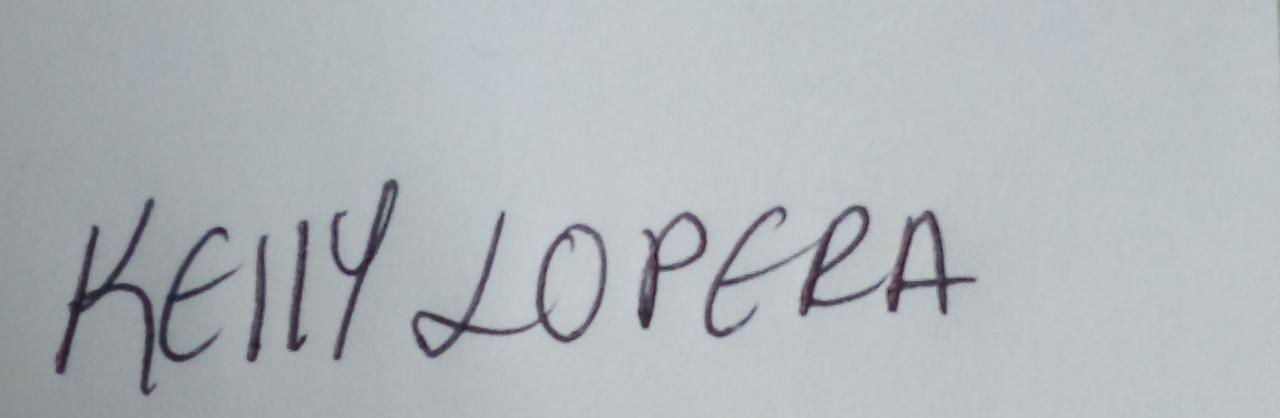 KEllY LOPERA